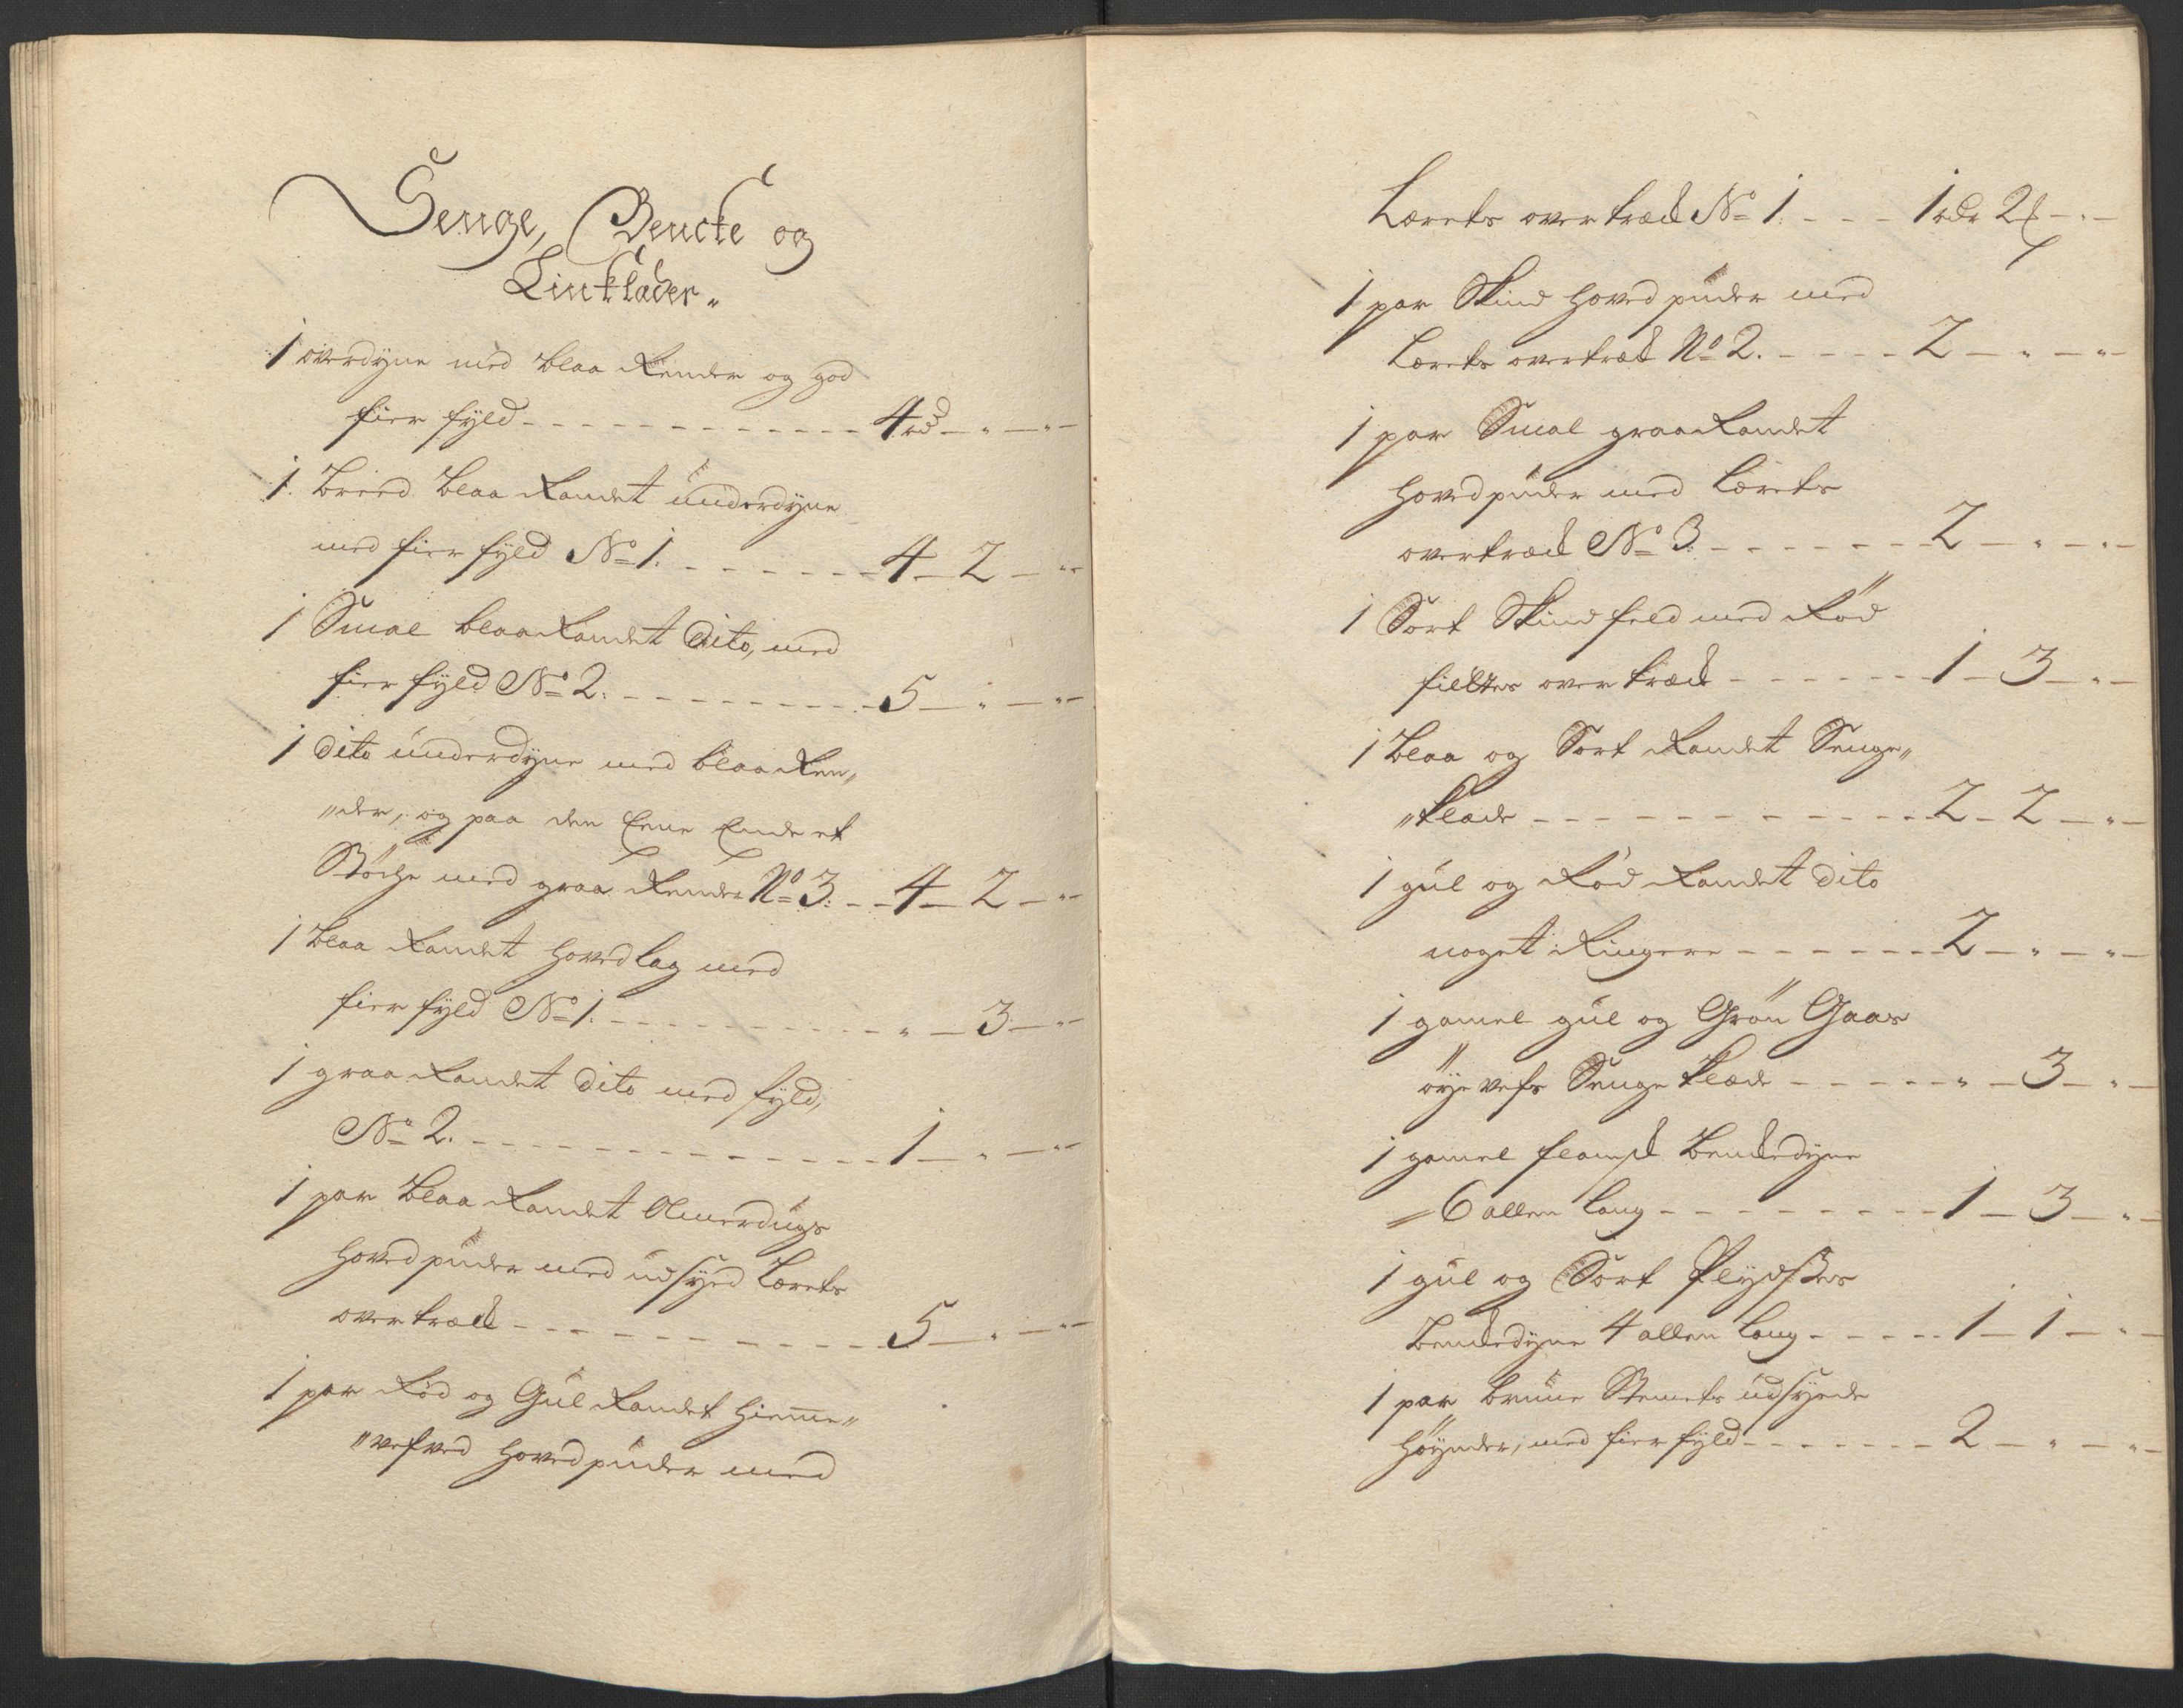 Senge, Bencke og
Linklæder„
1 overdyne med blaa Render og god
fier fyld - - - - 4 rd — „ — „ —
1. breed blaa Randet underdyne
med fier fyld No 1. - - - - 4 — 2 — „ —
1 Smal blaa Randet Dito, med
fier fyld No 2. - - - - 5 — „ — „ —
1 dito underdyne med blaa Ren„
„der, og paa den Eene Ende et
Støche med graa Render No 3: - - 4 — 2 — „ —
1 blaa Randet hovedlag med
fier fyld No 1. - - - - „ — 3 — „ —
1 graa Randet dito med fyld,
No 2. - - - - 1 — „ — „ —
1 par blaa Randet Olmerdugs
hovedpuder med udsyed Lærets
overtræck - - - - 5 — „ — „ —
1 par Rød og Guul Randet hieme„
„vefved hovedpuder med
Lærets overtræck No 1. - - - 1 rdr 2 ƒ — „ —
1 par Skind hovedpuder med
Lærets overtræck No 2. - - - - 2 — „ — „ —
1 par Smal graa Randet
hovedpuder med Lærets
overtræck No 3. - - - - 2 — „ — „ —
1 Sort Skindfeld med Rød
filttes overtræck - - - - 1 — 3 — „ —
1 blaa og Sort Randet Senge„
„klæde - - - - 2 — 2 — „ —
1 gul og Rød Randet dito
noget Ringere - - - - 2 — „ — „ —
1 gamel gul og Grøn Gaas
øye vefs Sengeklæde - - - - „ — 3 — „ —
1 gamel flamsk Benckedyne
6 allen lang - - - - 1 — 3 — „ —
1 gul og Sort Plydskes
Benckedyne 4 allen lang - - - - 1 — 1 — „ —
1 par brune Stemets udsyede
høynder, med fier fyld - - - - 2 — „ — „ —